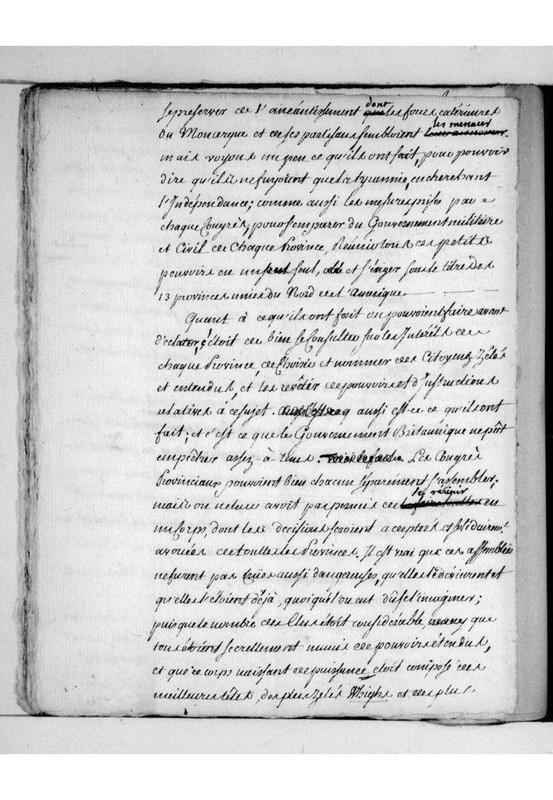 se preserver de l'anéantissement dont les forces extérieures
du Monarque et de ses partisans sembloient les menacer.
mais voyons un peu ce qu'ils ont fait, pour pouvoir
dire qu'ils ne fuyoient que la tyrannie, en cherchant
l'Indépendance; comme aussi les mesures prises par
chaque Congrès, pour s'emparer du Gouvernement militaire
et Civil de chaque Province, Réunir tous ces petits
pouvoirs en un seul, et s'ériger sous le titre des
13 provinces unies du Nord de l'Amérique.
Quant à ce qu'ils ont fait ou pouvoient faire avant
d'éclater, c'étoit de bien se Consulter sur les Intérêts de
chaque Province, de Choisir et nommer des Citoyens Zélés
et entendus, et les revêtir de pouvoirs et d'Instructions
relatives à ce sujet. aussi est-ce ce qu'ils ont
fait; et c'est ce que le Gouvernement Britannique ne put
empêcher assez à tems. Les Congrès
Provinciaux pouvoient bien chacun séparément s'assembler.
mais on ne leur avoit pas permis de se réunir en
un Corps, dont les décisions seroient acceptées et solidairemt
avouées de toutes les Provinces. Il est vrai que ces assemblées
ne furent pas crües aussi dangereuses, qu'elles le devinrent et
qu'elles l'étoient déjà, quoiqu'on eut dû se l'imaginer;
puisque le nombre des Elus étoit considérable, que
tous étoient secrettement munis de pouvoirs étendus,
et que ce corps naissant de puissance étoit composé des
meilleures têtes, des plus zélés Whighs et des plus